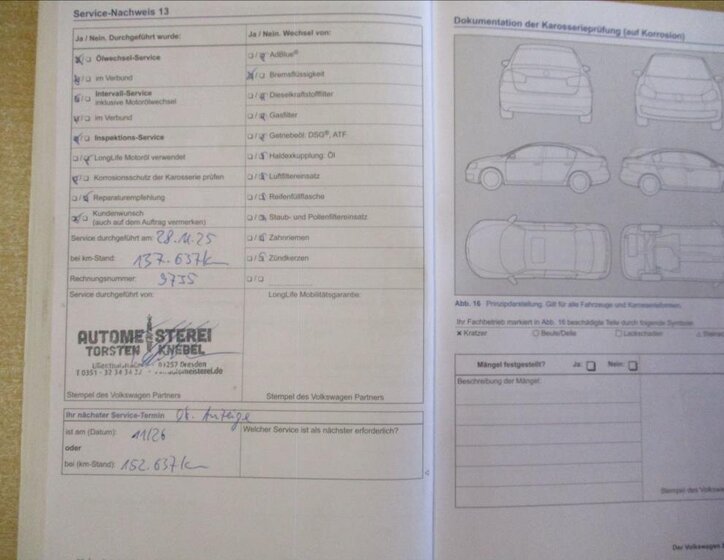 Service-Nachweis 13
Ja / Nein. Durchgeführt wurde:
Ölwechsel-Service
im Verbund
Intervall-Service
inklusive Motorölwechsel
im Verbund
Inspektions-Service
LongLife Motoröl verwendet
Korrosionsschutz der Karosserie prüfen
Reparaturempfehlung
Kundenwunsch
(auch auf dem Auftrag vermerken)
Service durchgeführt am: 28.11.25
bei km-Stand: 137.637km
Rechnungsnummer: 9735
Service durchgeführt von:
AUTOMEISTEREI
TORSTEN KNEBEL
01257 Dresden
Stempel des Volkswagen Partners
Ja / Nein. Wechsel von:
AdBlue®
Bremsflüssigkeit
Dieselkraftstofffilter
Gasfilter
Getriebeöl: DSG®, ATF
Haldexkupplung: Öl
Luftfiltereinsatz
Reifenfüllflasche
Staub- und Pollenfiltereinsatz
Zahnriemen
Zündkerzen
LongLife Mobilitätsgarantie:
Stempel des Volkswagen Partners
Ihr nächster Service-Termin Anzeige
ist am (Datum): 11/26
oder
bei (km-Stand): 152.637km
Welcher Service ist als nächster erforderlich?
Dokumentation der Karosserieprüfung (auf Korrosion)
Abb. 16 Prinzipdarstellung. Gilt für alle Fahrzeuge und Karosserieformen.
Ihr Fachbetrieb markiert in Abb. 16 beschädigte Teile durch folgende Symbole:
× Kratzer Beule/Delle Lackschaden
Mängel festgestellt? Ja: Nein:
Beschreibung der Mängel:
Stempel des
Der Volkswagen